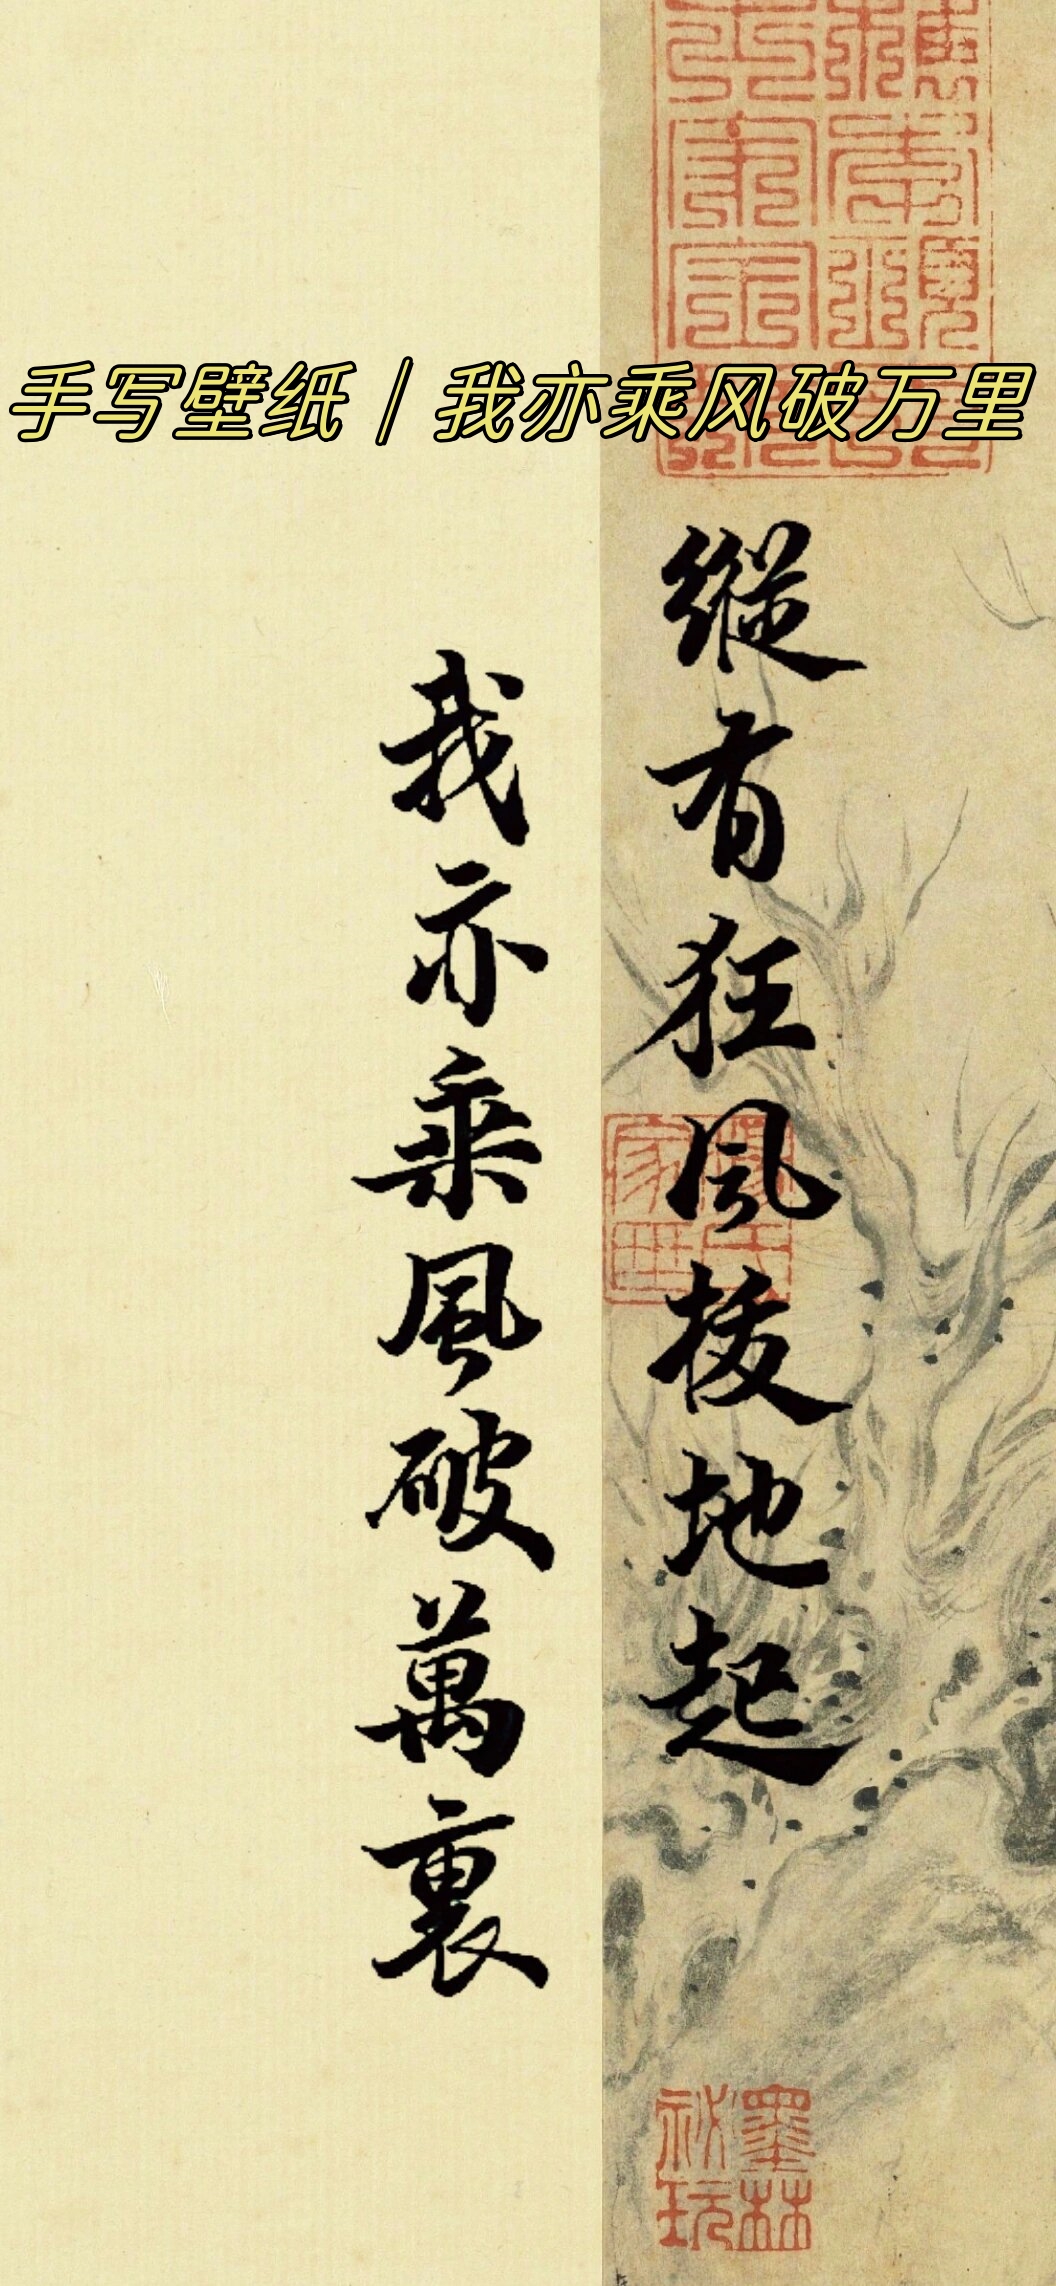 手写壁纸 | 我亦乘风破万里
縱有狂風拔地起
我亦乘風破萬裏
墨林
祕玩